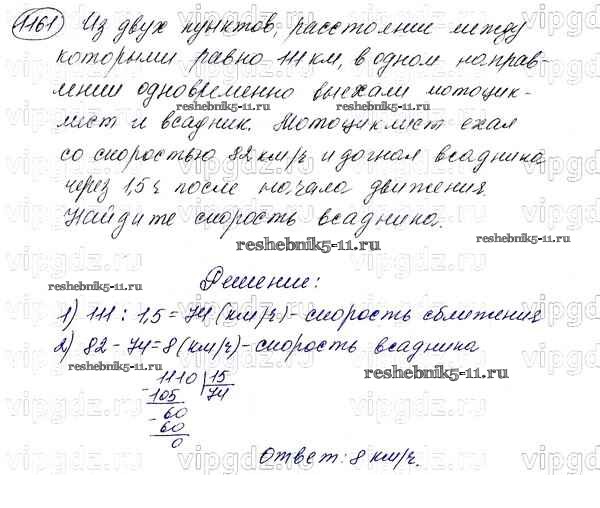 1161 Из двух пунктов, расстояние между
которыми равно 111 км, в одном направ-
лении одновременно выехали мотоцик-
reshebnik5-11.ru reshebnik5-11.ru
лист и всадник. Мотоциклист ехал
со скоростью 82 км/ч и догнал всадника
через 1,5 ч после начала движения.
Найдите скорость всадника.
reshebnik5-11.ru
reshebnik5-11.ru
Решение:
1) 111 : 1,5 = 74 (км/ч) - скорость сближения
2) 82 - 74 = 8 (км/ч) - скорость всадника
reshebnik5-11.ru
1110 | 15
- 105 74
- 60
60
0
Ответ: 8 км/ч.
vipgdz.ru vipgdz.ru vipgdz.ru